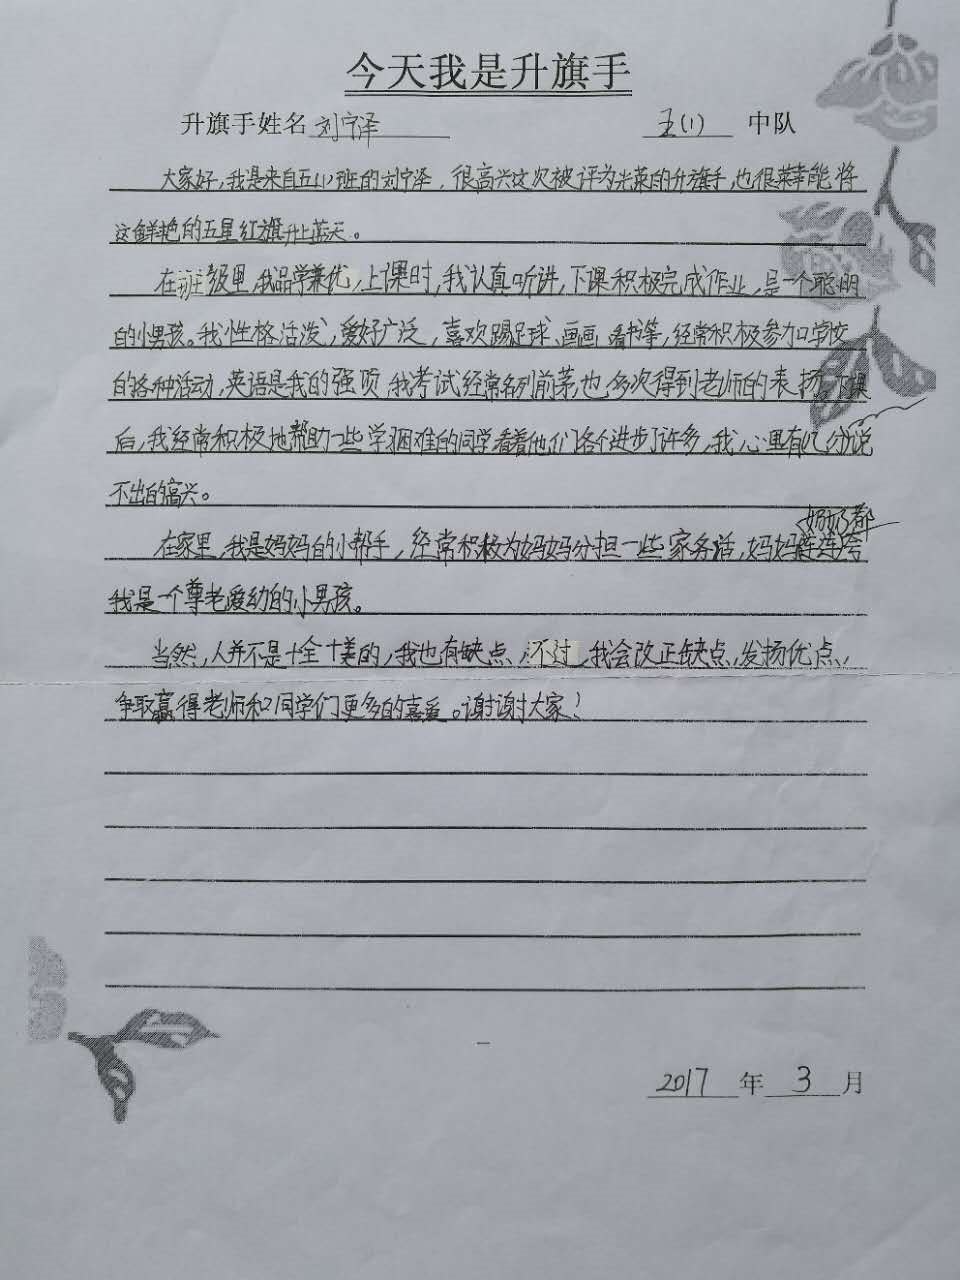 今天我是升旗手
升旗手姓名 刘宁泽 五(1) 中队
大家好,我是来自五(1)班的刘宁泽,很高兴这次被评为光荣的升旗手,也很荣幸能将
这鲜艳的五星红旗升上蓝天。
在班级里,我品学兼优,上课时,我认真听讲,下课积极完成作业,是一个聪明
的小男孩。我性格活泼,爱好广泛,喜欢踢足球、画画、看书等,经常积极参加学校
的各种活动,英语是我的强项,我考试经常名列前茅,也多次得到老师的表扬,下课
后,我经常积极地帮助一些学困难的同学,看着他们各个进步了许多,我心里有几分说
不出的高兴。
奶奶都
在家里,我是妈妈的小帮手,经常积极为妈妈分担一些家务活,妈妈连连夸
我是一个尊老爱幼的小男孩。
当然,人并不是十全十美的,我也有缺点,不过,我会改正缺点,发扬优点,
争取赢得老师和同学们更多的喜爱。谢谢大家!
2017 年 3 月